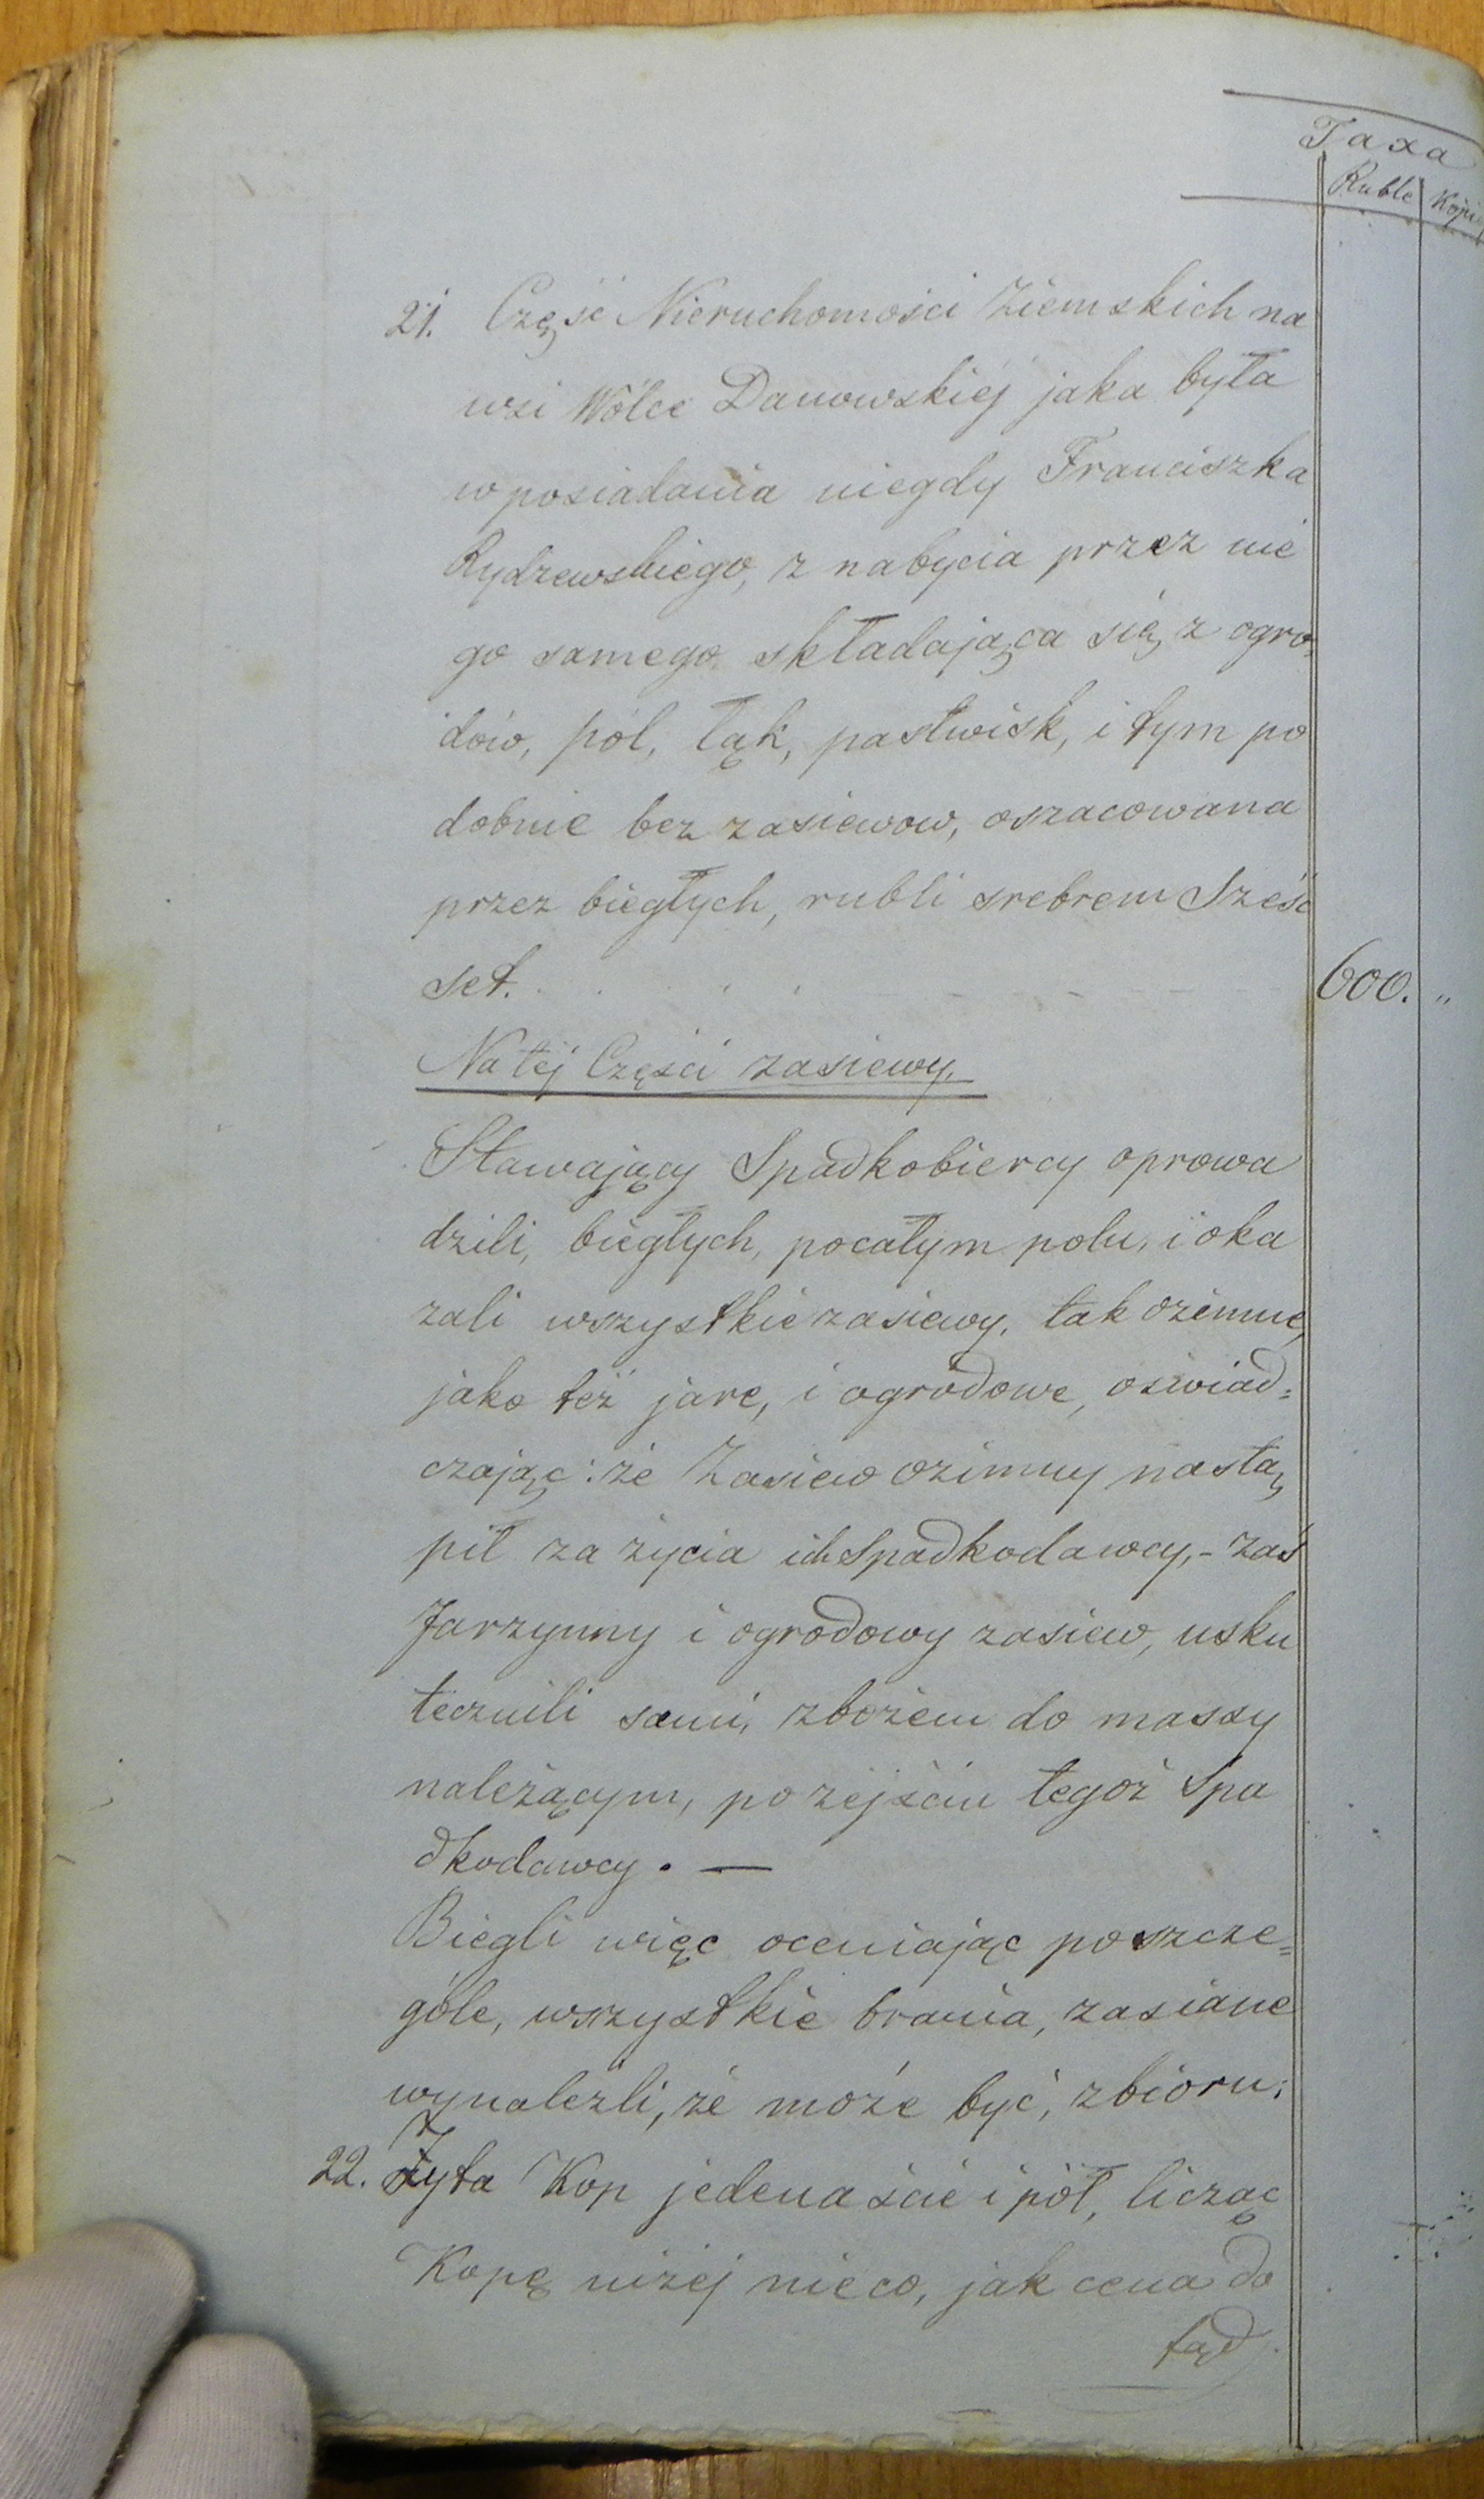 Taxa
Ruble Kopi
21. Część Nieruchomości Ziemskich na
wsi Wólce Danowskiej jaka była
w posiadania niegdy Franciszka
Rydzewskiego, z nabycia przez nie
go samego składająca się z ogro-
dów, pól, łąk, pastwisk, i tym po
dobnie bez zasiewow, oszacowana
przez biegłych, rubli srebrem Sześć
set. 600. "
Na téj Części zasiewy.
Stawający Spadkobiercy oprowa
dzili, biegłych, po całym polu, i oka
zali wszystkie zasiewy, tak ozimne,
jako też jare, i ogrodowe, oświad=
czając: że Zasiew ozimny nastą
pił za życia ich Spadkodawcy,- zaś
Jarzynny i ogrodowy zasiew, usku
tecznili sami, zbożem do massy
należącym, po zéjściu tegoż Spa
dkodawcy. —
Biegli więc oceniając poszcze=
góle, wszystkie brania, zasiane
wynalezli, że może być, zbioru;
22. Żyta Kop jedenaście i pół, licząc
Kopę niżéj nieco, jak cena do
tąd